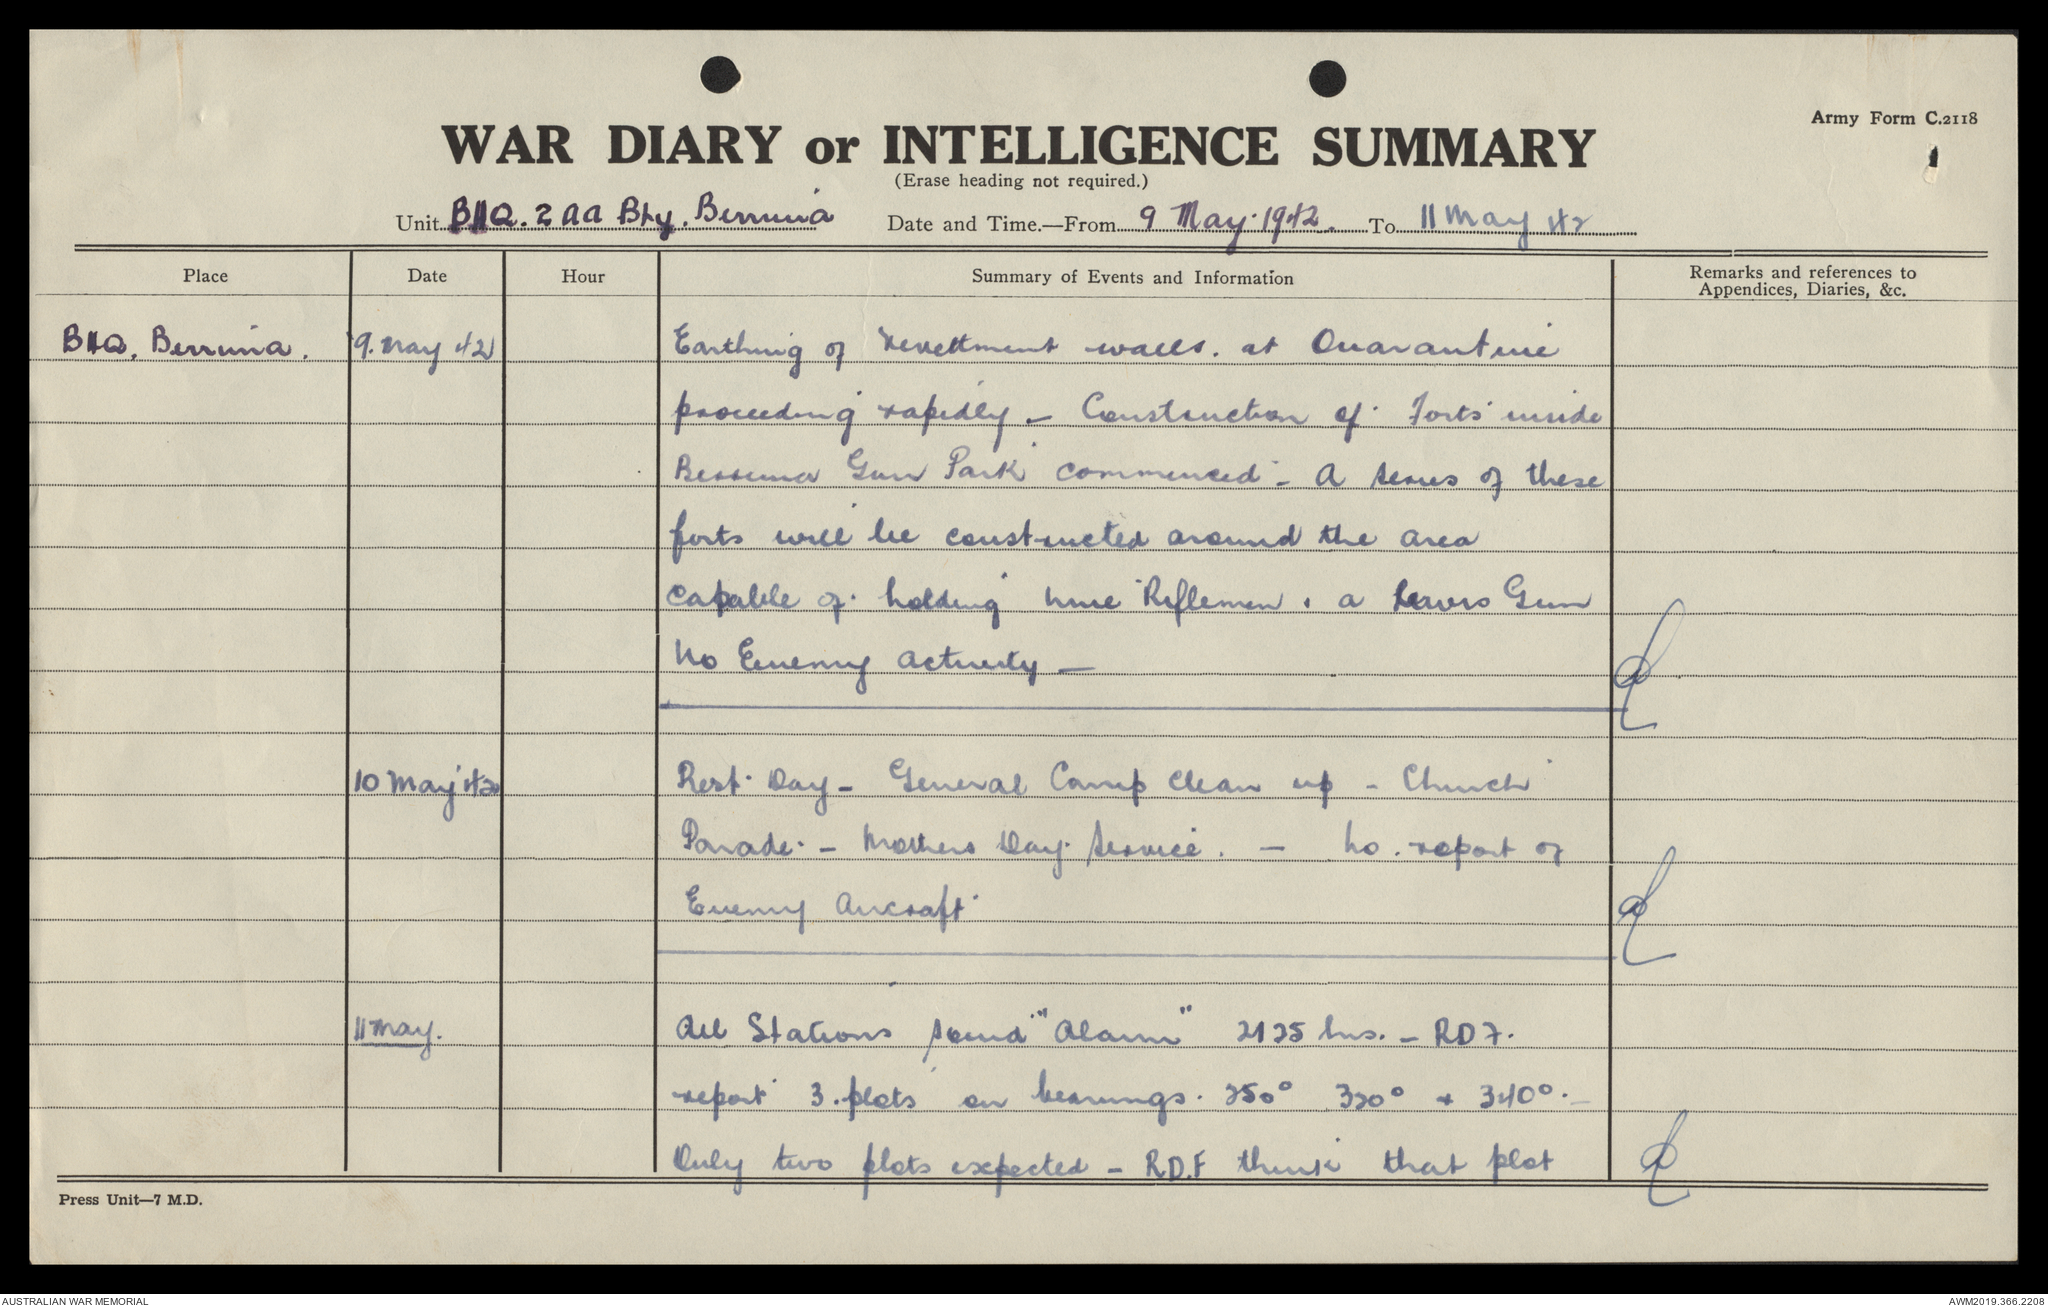 Army Form C.2118
WAR DIARY or INTELLIGENCE SUMMARY
(Erase heading not required.)
Unit BHQ. 2 AA Bty. Berrima Date and Time.—From 9 May. 1942. To 11 May 42
Place Date Hour Summary of Events and Information Remarks and references to
Appendices, Diaries, &c.
BHQ. Berrima. 9. May 42 Earthing of revettment walls. at Quarantine
proceeding rapidly – Construction of Forts inside
Berrima Gun Park commenced – A series of these
forts will be constructed around the area
capable of holding nine Riflemen. a Lewis Gun
No Enemy activity –
10 May 42 Rest Day – General Camp clean up – Church
Parade. – Mothers Day Service. – No. report of
Enemy Aircraft
11 May. All Stations sound "Alarm" 2125 hrs. – RDF.
report 3 plots on bearings. 250° 320° + 340°. –
Only two plots expected – R.D.F think that plot
Press Unit—7 M.D.
AUSTRALIAN WAR MEMORIAL AWM2019.366.2208